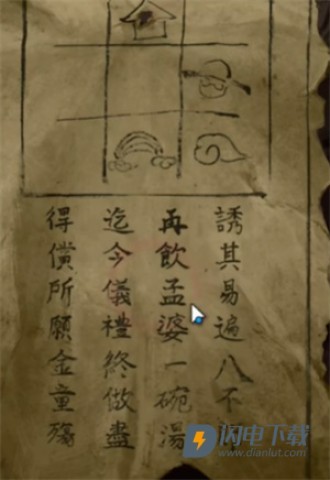 誘其易遍八不
再飲孟婆一碗湯
迄今儀禮終做盡
得償所願金童殤
闪电下载
www.dianlut.com